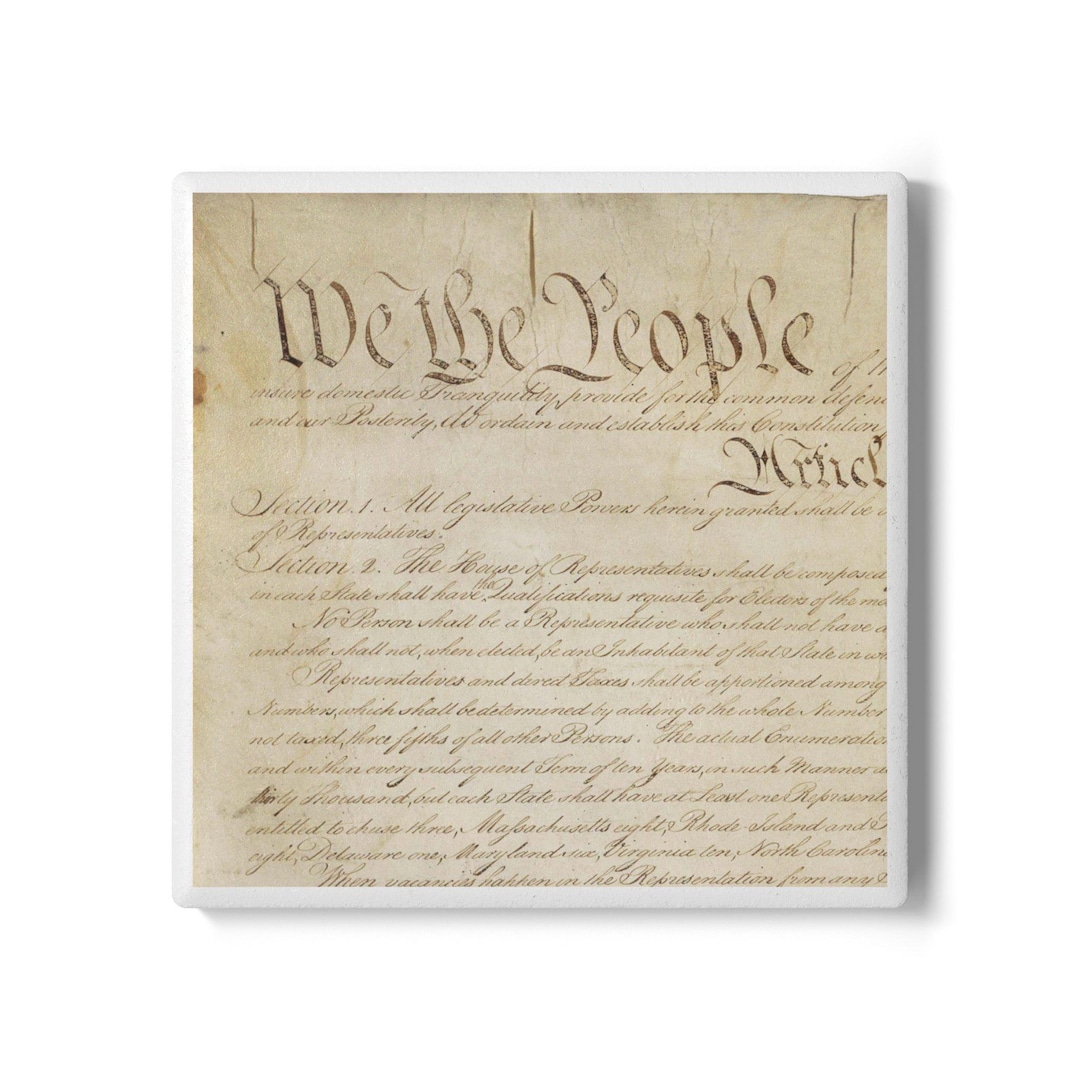 We the People of th
insure domestic Tranquility, provide for the common defen
and our Posterity, do ordain and establish this Constitution
Articl
Section. 1. All legislative Powers herein granted shall be v
of Representatives.
Section. 2. The House of Representatives shall be composed
in each State shall have the Qualifications requisite for Electors of the mo
No Person shall be a Representative who shall not have a
and who shall not, when elected, be an Inhabitant of that State in wh
Representatives and direct Taxes shall be apportioned among
Numbers, which shall be determined by adding to the whole Number
not taxed, three fifths of all other Persons. The actual Enumeration
and within every subsequent Term of ten Years, in such Manner a
thirty Thousand, but each State shall have at Least one Representa
entitled to chuse three, Massachusetts eight, Rhode-Island and P
eight, Delaware one, Maryland six, Virginia ten, North Carolina
When vacancies happen in the Representation from any S